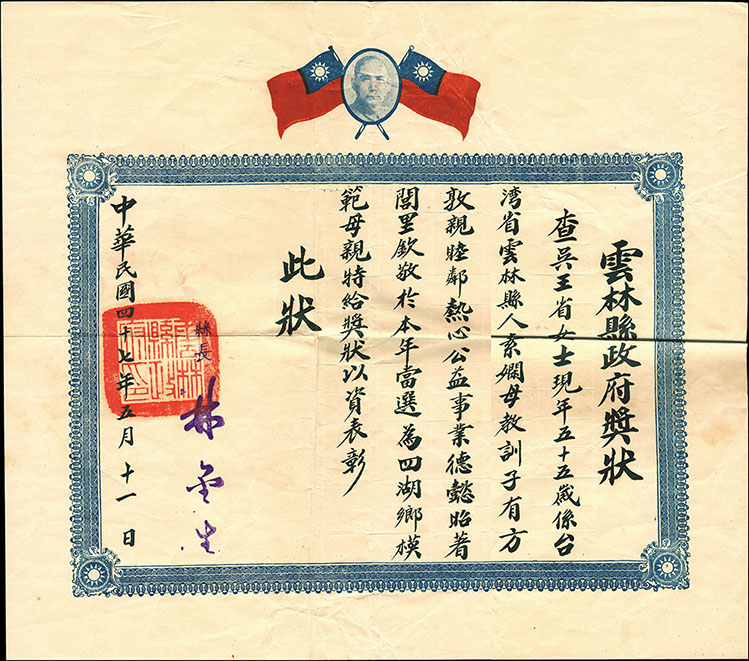 雲林縣政府獎狀
查吳王省女士現年五十五歲係台
湾省雲林縣人素嫻母教訓子有方
敦親睦鄰熱心公益事業德懿昭著
閭里欽敬於本年當選為四湖鄉模
範母親特給獎狀以資表彰
此狀
縣長 林金生
中華民國四十七年五月十一日
雲林縣政府印